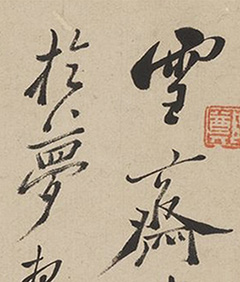 雪齋
於夢